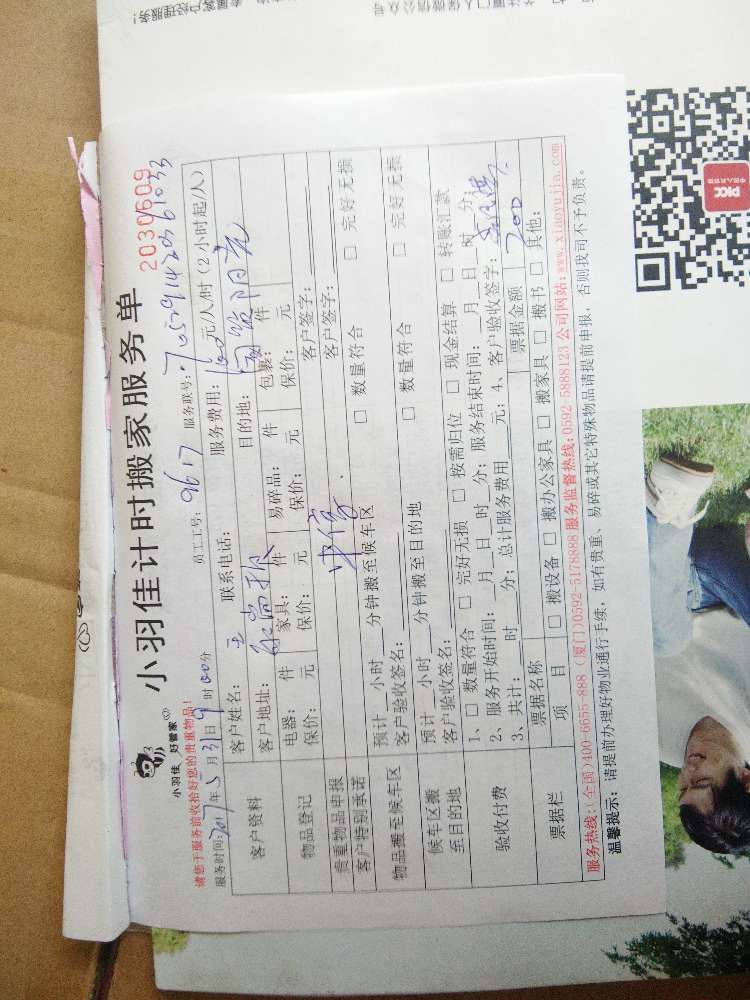 小羽佳计时搬家服务单
2030609
小羽佳 好管家
请您于服务前收拾好您的贵重物品!
员工工号: 9617 服务联号:
服务时间: 2017年5月31日9时00分
客户资料
客户姓名: 王 联系电话: 服务费用: 100元/人/时(2小时起/人)
客户地址: 目的地: 国贸阳光
物品登记
电器: 件 家具: 件 易碎品: 件 包裹: 件
保价: 元 保价: 元 保价: 元 保价: 元
贵重物品申报 客户签字:
客户特别承诺 客户签字:
物品搬至候车区
预计 小时 分钟搬至候车区 □ 数量符合 □ 完好无损
客户验收签名:
候车区搬至目的地
预计 小时 分钟搬至目的地 □ 数量符合 □ 完好无损
客户验收签名:
验收付费
1、□ 数量符合 □ 完好无损 □ 按需归位 □ 现金结算 □ 转账汇款
2、服务开始时间: 月 日 时 分; 服务结束时间: 月 日 时 分;
3、共计: 时 分; 总计服务费用 元; 4、客户验收签字:
票据栏
票据名称 票据金额 200
项目 □ 搬设备 □ 搬办公家具 □ 搬家具 □ 搬书 □ 其他:
服务热线:(全国)400-6655-888 (厦门)0592-5178888 服务监督热线:0592-5888123 公司网站:www.xiaoyujia.com
温馨提示: 请提前办理好物业通行手续, 如有贵重、易碎或其它特殊物品请提前申报, 否则我司不予负责。
PICC